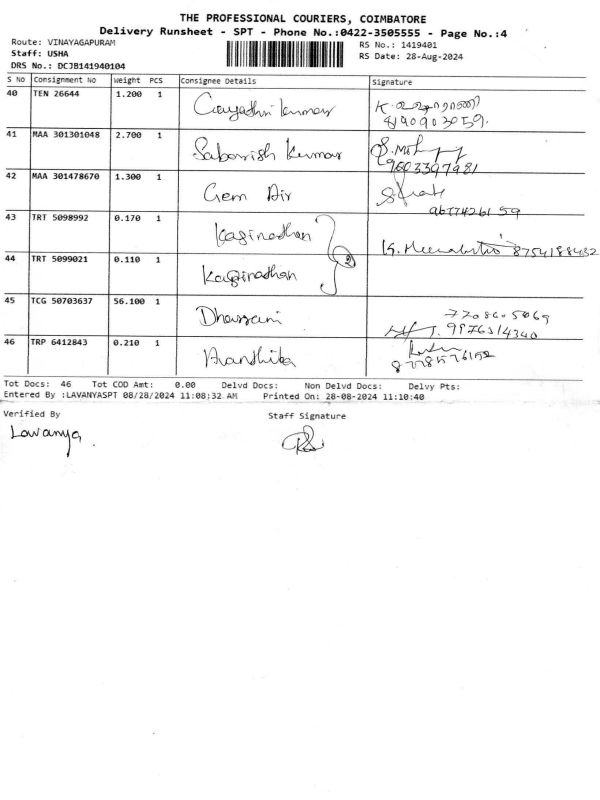 THE PROFESSIONAL COURIERS, COIMBATORE
Delivery Runsheet - SPT - Phone No.:0422-3505555 - Page No.:4
Route: VINAYAGAPURAM RS No.: 1419401
Staff: USHA RS Date: 28-Aug-2024
DRS No.: DCJB141940104
S No Consignment No Weight PCS Consignee Details Signature
40 TEN 26644 1.200 1 Gayathri Kumar K.
8190903059.
41 MAA 301301048 2.700 1 Sabarish Kumar
9603397981
42 MAA 301478670 1.300 1 Gem Air
9677426159
43 TRT 5098992 0.170 1 Kasinadhan
2 8754188432
44 TRT 5099021 0.110 1 Kasinadhan
45 TCG 50703637 56.100 1 Dharani 7708605069
9976314340
46 TRP 6412843 0.210 1
8778576152
Tot Docs: 46 Tot COD Amt: 0.00 Delvd Docs: Non Delvd Docs: Delvy Pts:
Entered By :LAVANYASPT 08/28/2024 11:08:32 AM Printed On: 28-08-2024 11:10:40
Verified By Staff Signature
Lavanya.